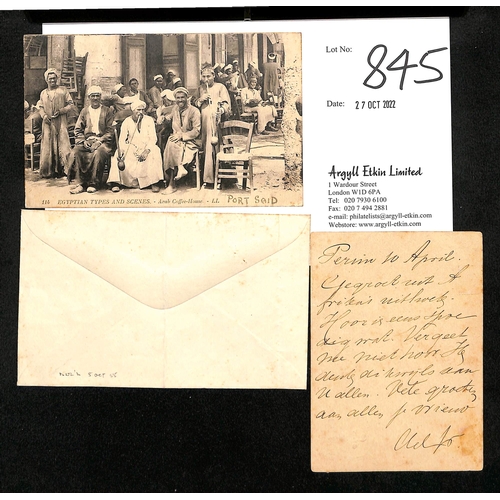 Lot No: 845
Date: 27 OCT 2022
Argyll Etkin Limited
1 Wardour Street
London W1D 6PA
Tel: 020 7930 6100
Fax: 020 7 494 2881
e-mail: philatelists@argyll-etkin.com
Webstore: www.argyll-etkin.com
214 EGYPTIAN TYPES AND SCENES. - Arab Coffee-House. - LL. PORT SAID
10 April.
uit
Hoor
wat. Vergeet
me niet hoor Ik
denk dikwijls aan
U allen. Vele groeten
aan allen